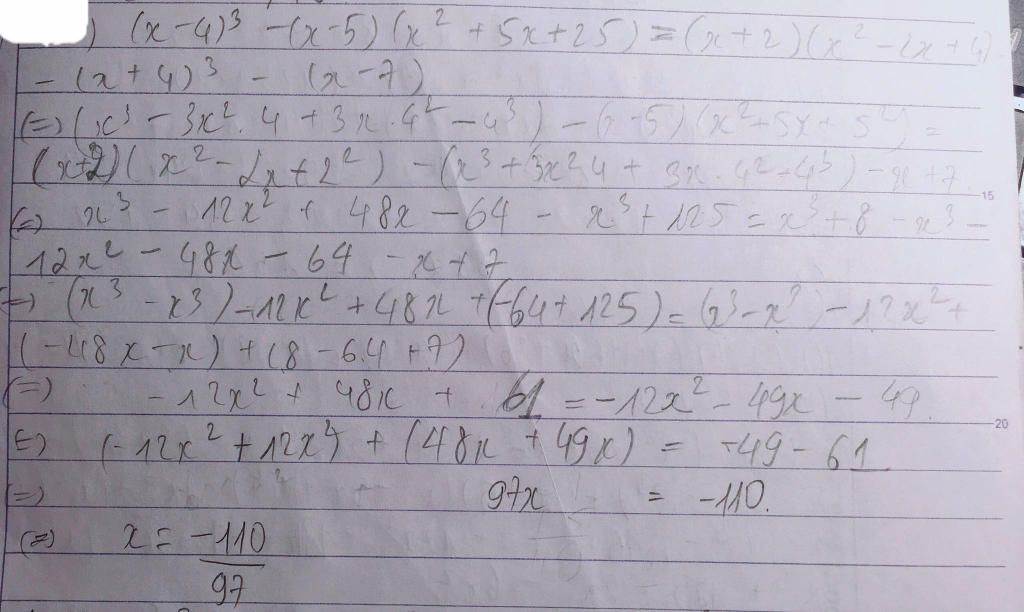 ) (x-4)³ -(x-5)(x² + 5x+25) = (x+2)(x² -2x+4)
- (x + 4)³ - (x -7)
(=) (x³ - 3x².4 + 3x.4² - 4³) - (x-5)(x²+5x+5²) =
(x+2)(x² - 2x + 2²) - (x³ + 3x²4 + 3x.4²+4³) - x +7
15
(=) x³ - 12x² + 48x - 64 - x³ + 125 = x³ + 8 - x³ -
12x² - 48x - 64 - x + 7
(=) (x³ - x³) -12x² + 48x + (-64+125) = (x³-x³) -12x² +
(-48x -x) + (8 -64 +7)
(=) -12x² + 48x + 61 = -12x² - 49x - 49.
20
(=) (-12x² +12x²) + (48x + 49x) = -49 - 61
(=) 97x = -110.
(=) x = -110/97